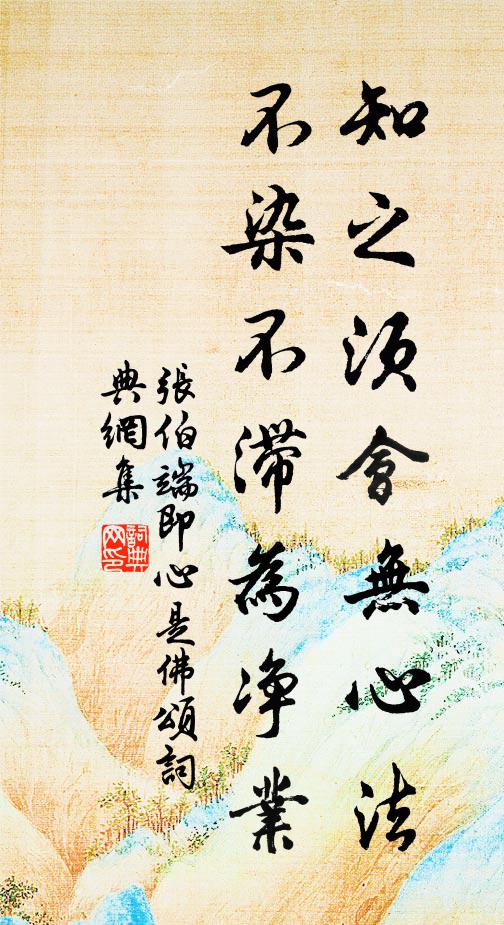 知之須會無心法
不染不滯為净業
張伯端即心是佛頌詞
典網集
詞典